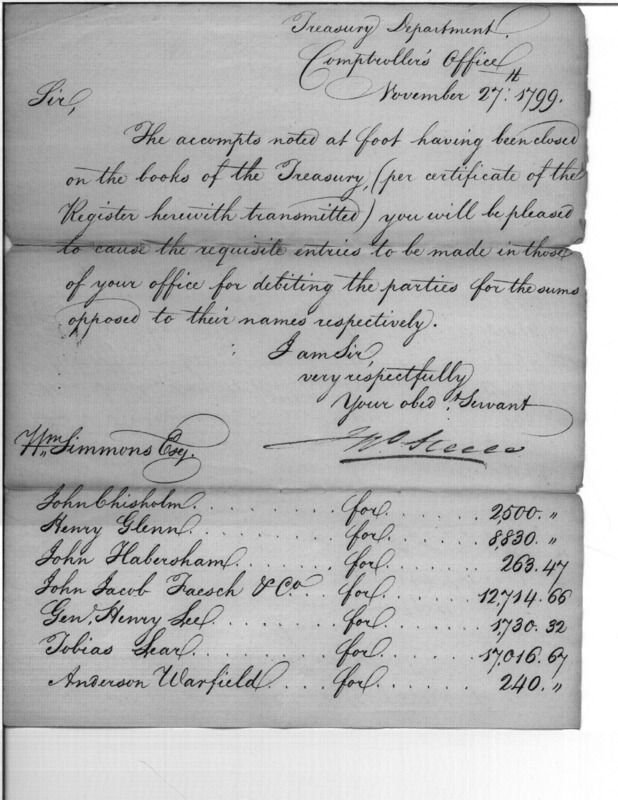 Treasury Department.
Comptroller's Office
November 27th. 1799.
Sir,
The accompts noted at foot having been closed
on the books of the Treasury, (per certificate of the
Register herewith transmitted) you will be pleased
to cause the requisite entries to be made in those
of your office for debiting the parties for the sums
opposed to their names respectively.
I am Sir,
very respectfully
Your obed.t Servant
Jno. Steele
Wm Simmons Esq.
John Chisholm . . . . . . . for . . . . . . 2,500. "
Henry Glenn . . . . . . . for . . . . . . 8,830. "
John Habersham . . . . . for . . . . . . 263.47
John Jacob Faesch & Co. for . . . . . . 12,714.66
Genl. Henry Lee . . . . . . for . . . . . . 1,730.32
Tobias Lear . . . . . . . for . . . . . . 17,016.67
Anderson Warfield . . . . for . . . . . . 240. "